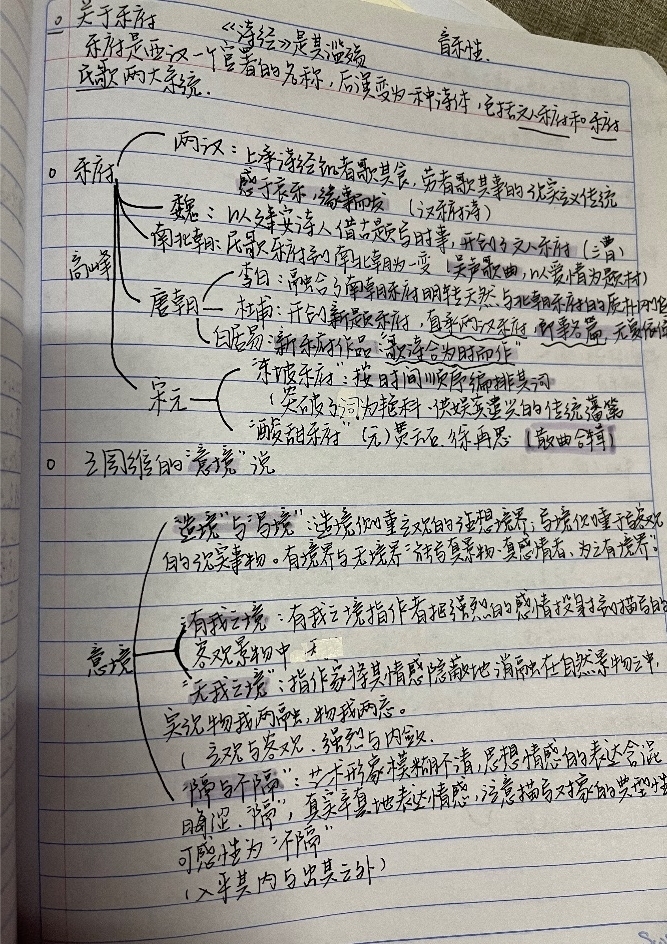 关于乐府
《诗经》是其滥觞 音乐性.
乐府是西汉一个官署的名称，后演变为一种诗体，包括文人乐府和乐府
民歌两大系统.
乐府
高峰
两汉：上承诗经饥者歌其食，劳者歌其事的现实主义传统
感于哀乐，缘事而发 （汉乐府诗）
魏：以建安诗人借古题写时事，开创了文人乐府（三曹）
南北朝：民歌乐府到南北朝为一变（吴声歌曲，以爱情为题材）
唐朝
李白：融合了南朝乐府明转天然与北朝乐府的质朴
杜甫：开创新题乐府，直承两汉乐府 即事名篇 无复依傍
白居易：新乐府作品“歌诗合为时而作”
宋元
“东坡乐府”：按时间顺序编排其词
（突破了词为艳科、供娱宾遣兴的传统藩篱
“酸甜乐府”（元）贯云石、徐再思（散曲合辑）
王国维的“意境”说
意境
“造境”与“写境”：造境侧重主观的理想境界，写境侧重于客观
的现实事物。有境界与无境界“能写真景物、真感情者，为之有境界”。
有我之境：有我之境指作者把强烈的感情投射到描写的
客观景物中 无
“无我之境”：指作家将其情感隐蔽地消融在自然景物之中，
实现物我两融，物我两忘。
（主观与客观、强烈与内敛.
“隔与不隔”：艺术形象模糊不清，思想情感的表达含混
晦涩、“隔”，真实率真地表达情感，注意描写对象的典型性
可感性为“不隔”
（入乎其内与出其之外）